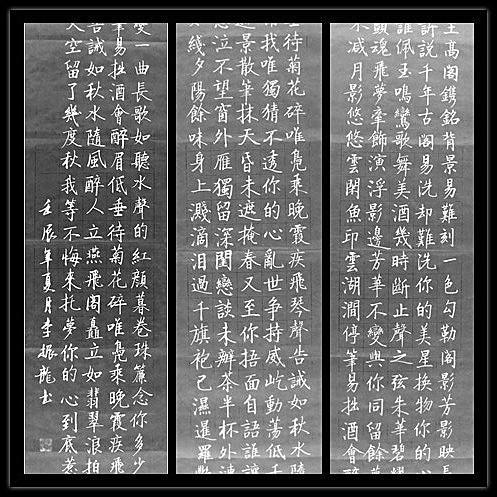 王高閣鐫銘背景易難刻一色勾勒閣影芳影映長
許說千年古閣易洗却難洗你的美星換物你的
誰佩玉鳴鸞歌舞美酒幾時斷止聲之弦朱華碧
魂飛夢牽飾演浮影邊芳華不變與你同留餘
不减月影悠悠雲閑魚印雲湖澗停筆易拙酒會醉
待菊花碎唯鳧乘晚霞疾飛琴聲告誡如秋水隨
我唯獨猜不透你的心亂世争持威屹動蕩低千
近景散筆抹天昏未遮掩春又至你捂面自語誰讓
忍泣不望窗外雁獨留深閨戀談未辦茶半杯外連
綫夕陽餘味身上濺滴泪過千旗袍已濕暹羅
愛一曲長歌如聽水聲的紅顏暮卷珠簾念你多少
筆易拙酒會醉眉低垂待菊花碎唯鳧乘晚霞疾飛
告誡如秋水隨風醉人立燕飛閣矗立如翡翠浪拍
天空留了幾度秋我等不悔來托夢你的心到底惹
壬辰年夏月李振龍书